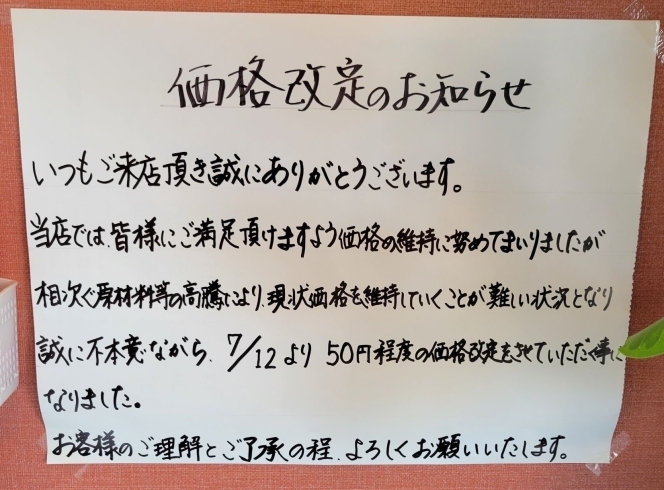 価格改定のお知らせ
いつもご来店頂き誠にありがとうございます。
当店では、皆様にご満足頂けますよう価格の維持に努めてまいりましたが
相次ぐ原材料等の高騰により、現状価格を維持していくことが難しい状況となり
誠に不本意ながら、7/12より 50円程度の価格改定をさせていただく事に
なりました。
お客様のご理解とご了承の程、よろしくお願いいたします。